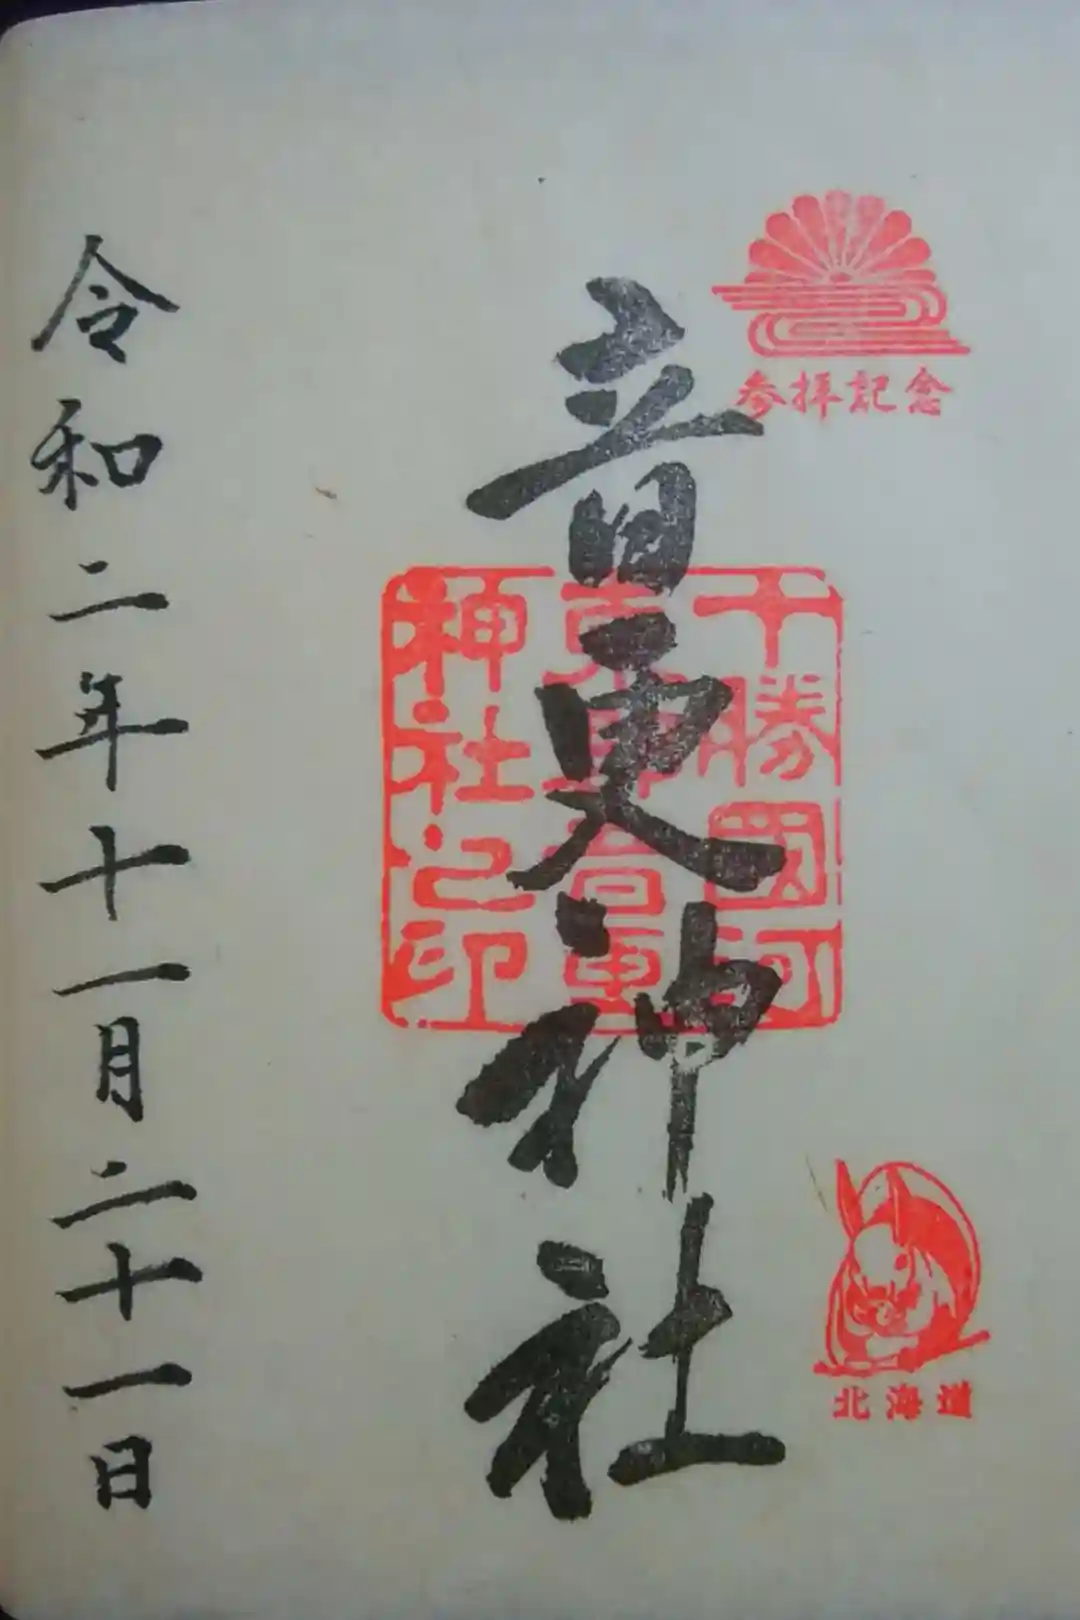 参拝記念
音更神社
十勝國河
東郡音更
神社之印
北海道
令和二年十一月二十一日